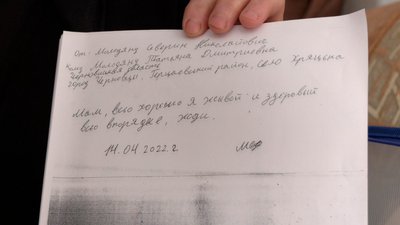 От: Молодяну Северин Николаевич
Кому Молодяну Татьяна Дмитриевна
Черновицкая область
город Черновцы. Герцаевский район, село Хряцька
Мам, всю хорошо я живой и здоровый
всю впорядке, жди.
14.04.2022 г.